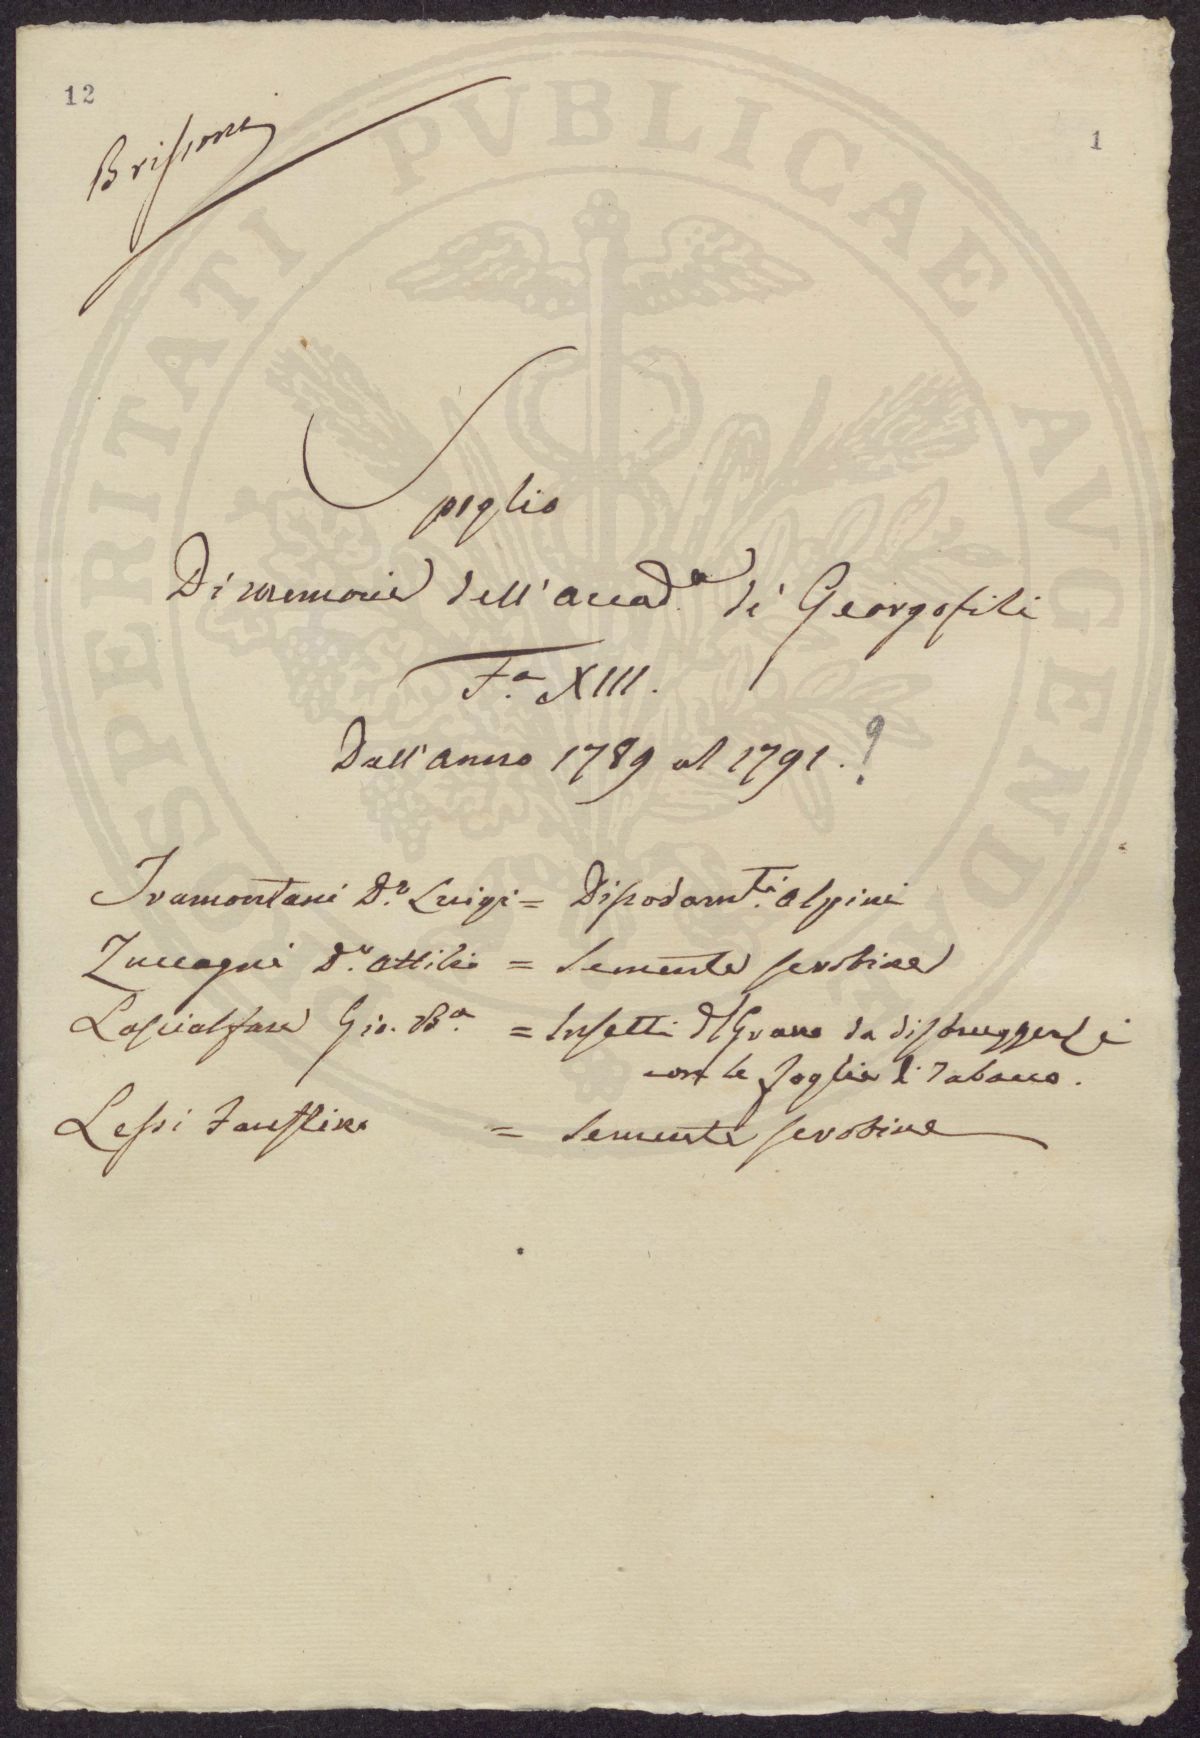 12
1
Brissone
Spoglio
Di memorie dell'accad.a de' Georgofili
F.a XIII.
Dall'anno 1789 al 1791. ?
Tramontani D.r Luigi = Dissodam.ti alpini
Zuccagni D.r Attilio = Semente serotine
Lascialfare Gio. Ba. = Insetti d/Grano da distruggersi
con le foglie di Tabacco.
Lessi Faustino = Semente serotine
PROSPERITATI PVBLICAE AVGENDAE